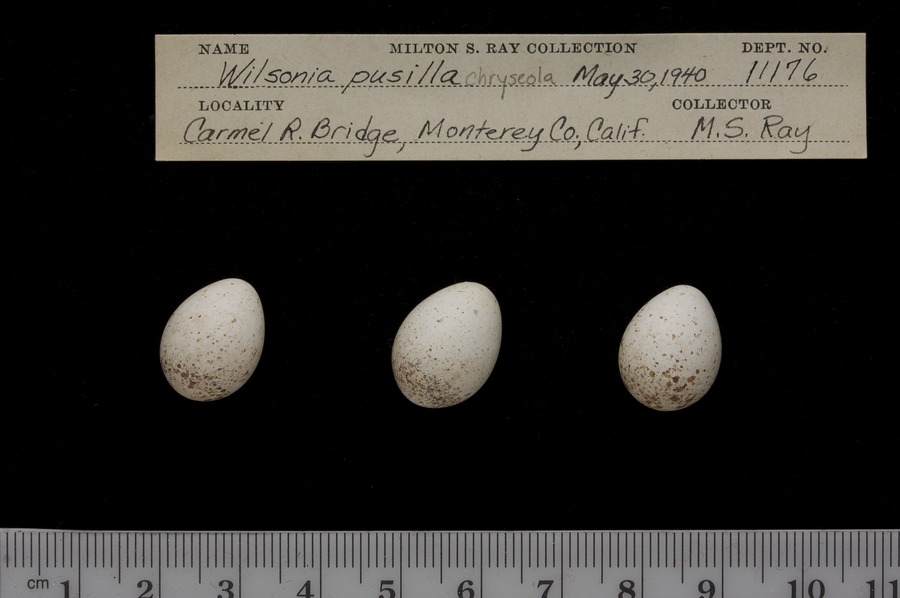 NAME MILTON S. RAY COLLECTION DEPT. NO.
Wilsonia pusilla chryseola May 30, 1940 11176
LOCALITY COLLECTOR
Carmel R. Bridge, Monterey Co., Calif. M.S. Ray
cm 1 2 3 4 5 6 7 8 9 10 11